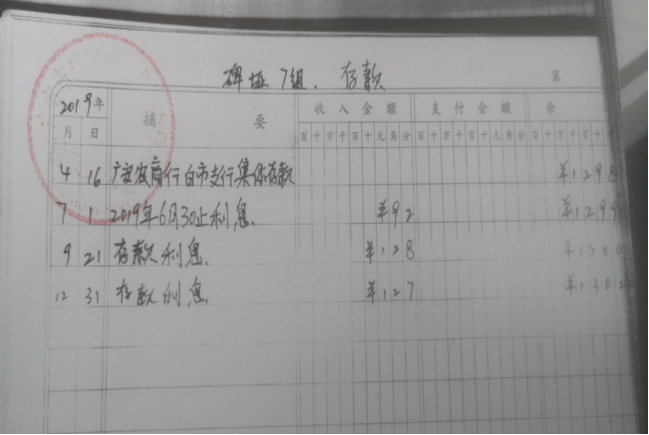 碑垭7组. 存款 第
2019年 摘 要 收入金额 支付金额 余
月 日 百十万千百十元角分 百十万千百十元角分 百十万千百十
4 16 广安农商行白市支行集体存款 ¥1298
7 1 2019年6月30止利息. ¥92 ¥129
9 21 存款利息. ¥128 ¥130
12 31 存款利息. ¥127 ¥1302